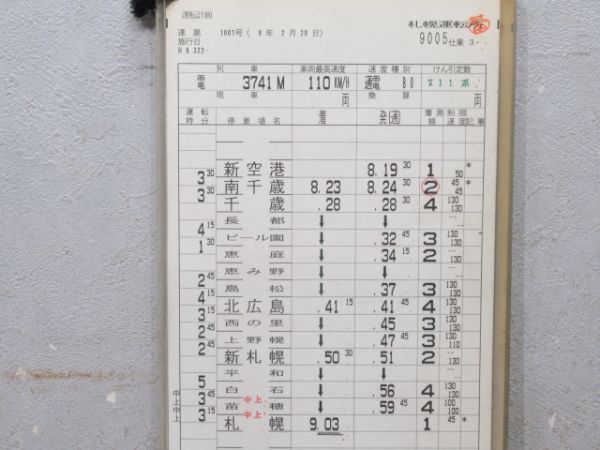 運転計画
札幌運転所
達第 1001号 ( 9年 2月 20日)
施行日
H 9 322
9005仕業 3-
列車 車両最高速度 速度種別 けん引定数
電 3741M 110 KM/H 通電 B0 711系
現車 両 換算 両
運転時分 停車場名 着 発(通) 着発線 制限速度 記事
新空港 8.19 30 1 50 *
3 30
南千歳 8.23 8.24 30 2 45 45 *
3 30
千歳 .28 .28 30 4 130 130
長都 ↓ ↓
4 15
ビール園 ↓ .32 45 3 130 130
1 30
恵庭 ↓ .34 15 2 130
恵み野 ↓ ↓
2 45
島松 ↓ .37 3 130 130
4 15
北広島 .41 15 .41 45 4 130 130
3 15
西の里 ↓ .45 3 130 130
2 45
上野幌 ↓ .47 45 3 130 110
2 45
新札幌 .50 30 .51 2 130
平和 ↓ ↓
5
白石 ↓ .56 4 130 130
中上 3 45 中上、
苗穂 ↓ .59 45 4 100 100
中上 3 15 中上、
札幌 9.03 1 45 *